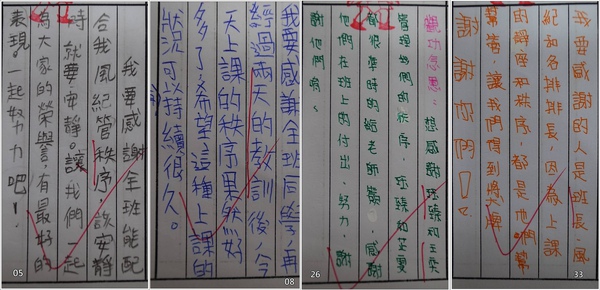 我要感謝全班能配
合我風紀管秩序,該安靜
時就要安靜。讓我們一起
為大家的榮譽,有最好的
表現。一起努力吧!
05
我要感謝全班同學,再
經過兩天的教訓後,今
天上課的秩序果然好
多了,希望這種上課的
狀況可以持續很久。
08
想感謝
們的秩序,
都很準時的給老師簽,感謝
他們在班上的付出、努力,謝
謝他們喔。
26
我要感謝的人是班長、風
紀和各排排長,因為上課
的靜座和秩序,都是他們幫
管,讓我們得到獎牌
謝謝你們!
33